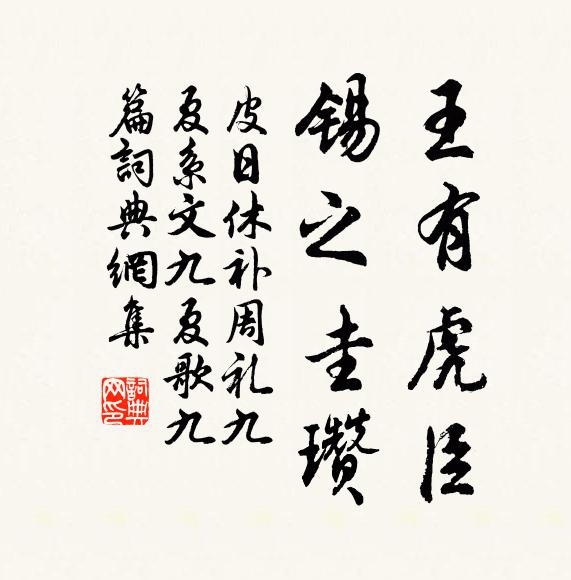 王有虎臣
锡之圭瓒
皮日休补周礼九
夏系文九夏歌九
篇詞典網集
詞典網印